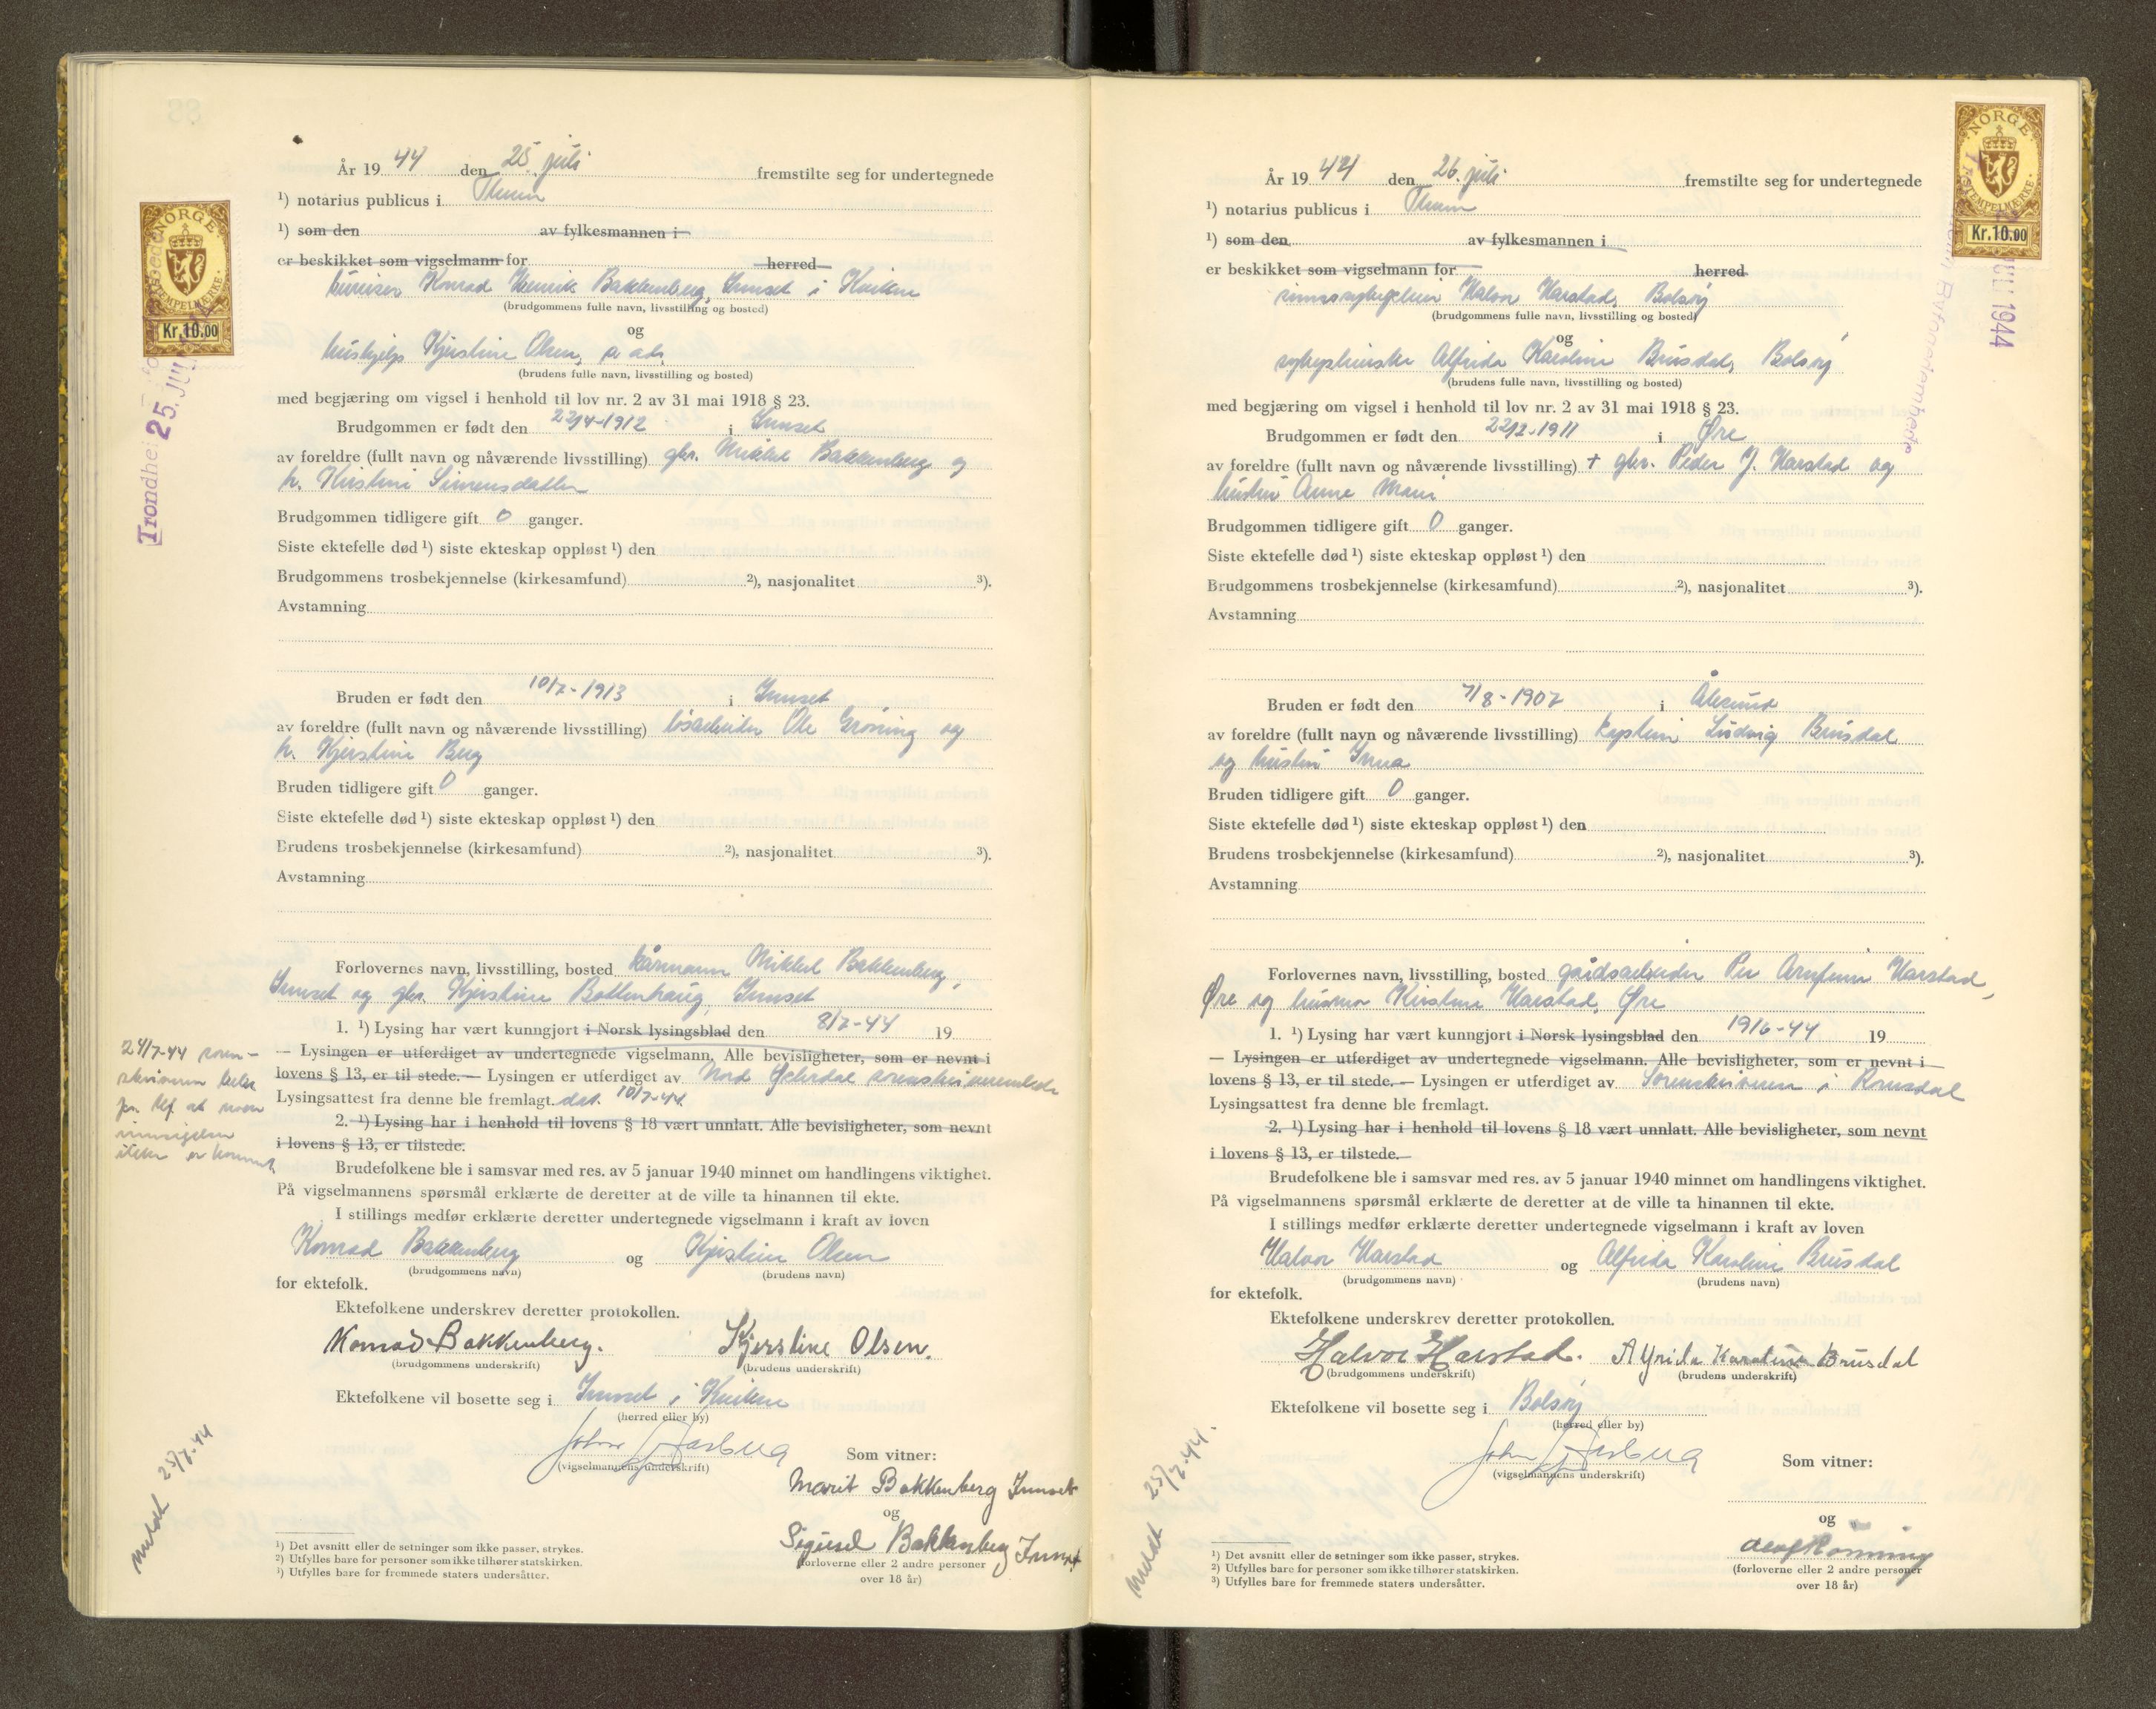 År 19 44 den 25. juli fremstilte seg for undertegnede
¹) notarius publicus i Thum
¹) som den av fylkesmannen i
er beskikket som vigselmann for herred
Konrad Henrik Bakkenberg, Innset i Kvikne
(brudgommens fulle navn, livsstilling og bosted)
og
hushjelp Kjerstine Olsen, s. ads.
(brudens fulle navn, livsstilling og bosted)
med begjæring om vigsel i henhold til lov nr. 2 av 31 mai 1918 § 23.
Brudgommen er født den 22/4-1912 i Innset
av foreldre (fullt navn og nåværende livsstilling) gbr. Mikkel Bakkenberg og
h. Kirstine Simensdatter
Brudgommen tidligere gift 0 ganger.
Siste ektefelle død ¹) siste ekteskap oppløst ¹) den
Brudgommens trosbekjennelse (kirkesamfund) ²), nasjonalitet ³).
Avstamning
Bruden er født den 10/7-1913 i Innset
av foreldre (fullt navn og nåværende livsstilling) løsarbeider Ole Grøning og
h. Kjerstine Berg
Bruden tidligere gift 0 ganger.
Siste ektefelle død ¹) siste ekteskap oppløst ¹) den
Brudens trosbekjennelse (kirkesamfund) ²), nasjonalitet ³).
Avstamning
Forlovernes navn, livsstilling, bosted kårmann Mikkel Bakkenberg,
Innset og gbr. Kjerstine Bottenhaug, Innset
1. ¹) Lysing har vært kunngjort i Norsk lysingsblad den 8/7-44 19
— Lysingen er utferdiget av undertegnede vigselmann. Alle bevisligheter, som er nevnt i
lovens § 13, er til stede. — Lysingen er utferdiget av Nord Østerdal sorenskriverembede
Lysingsattest fra denne ble fremlagt. dat. 10/7-44
2. ¹) Lysing har i henhold til lovens § 18 vært unnlatt. Alle bevisligheter, som nevnt
i lovens § 13, er tilstede.
24/7-44 soren-
skriveren
pr. tlf at noen
innsigelse
ikke er kommet
Brudefolkene ble i samsvar med res. av 5 januar 1940 minnet om handlingens viktighet.
På vigselmannens spørsmål erklærte de deretter at de ville ta hinannen til ekte.
I stillings medfør erklærte deretter undertegnede vigselmann i kraft av loven
Konrad Bakkenberg og Kjerstine Olsen
(brudgommens navn) (brudens navn)
for ektefolk.
Ektefolkene underskrev deretter protokollen.
Konrad Bakkenberg. Kjerstine Olsen.
(brudgommens underskrift) (brudens underskrift)
Ektefolkene vil bosette seg i Innset i Kvikne
(herred eller by)
John Aasberg
(vigselmannens underskrift)
Som vitner:
Marit Bakkenberg Innset
og
Sigurd Bakkenberg Innset
(forloverne eller 2 andre personer
over 18 år)
meldt 25/7-44
¹) Det avsnitt eller de setninger som ikke passer, strykes.
²) Utfylles bare for personer som ikke tilhører statskirken.
¹) Utfylles bare for fremmede staters undersåtter.
NORGE
STEMPELMÆRKE
Kr. 10.00
Trondheim
25. JUL
År 19 44 den 26. juli fremstilte seg for undertegnede
¹) notarius publicus i Thum
¹) som den av fylkesmannen i
er beskikket som vigselmann for herred
Halvor Harstad, Bolsøy
(brudgommens fulle navn, livsstilling og bosted)
og
Alfrida Karoline Brusdal, Bolsøy
(brudens fulle navn, livsstilling og bosted)
med begjæring om vigsel i henhold til lov nr. 2 av 31 mai 1918 § 23.
Brudgommen er født den 22/2-1911 i Øre
av foreldre (fullt navn og nåværende livsstilling) + gbr. Peder J. Harstad og
hustru Anne Mari
Brudgommen tidligere gift 0 ganger.
Siste ektefelle død ¹) siste ekteskap oppløst ¹) den
Brudgommens trosbekjennelse (kirkesamfund) ²), nasjonalitet ³).
Avstamning
Bruden er født den 7/8-1907 i Ålesund
av foreldre (fullt navn og nåværende livsstilling) kaptein Ludvig Brusdal
og hustru Inna
Bruden tidligere gift 0 ganger.
Siste ektefelle død ¹) siste ekteskap oppløst ¹) den
Brudens trosbekjennelse (kirkesamfund) ²), nasjonalitet ³).
Avstamning
Forlovernes navn, livsstilling, bosted gårdsarbeider Per Arnfinn Harstad,
Øre og husmor Kirstine Harstad, Øre
1. ¹) Lysing har vært kunngjort i Norsk lysingsblad den 19/6-44 19
— Lysingen er utferdiget av undertegnede vigselmann. Alle bevisligheter, som er nevnt i
lovens § 13, er til stede. — Lysingen er utferdiget av Sorenskriveren i Romsdal
Lysingsattest fra denne ble fremlagt.
2. ¹) Lysing har i henhold til lovens § 18 vært unnlatt. Alle bevisligheter, som nevnt
i lovens § 13, er tilstede.
Brudefolkene ble i samsvar med res. av 5 januar 1940 minnet om handlingens viktighet.
På vigselmannens spørsmål erklærte de deretter at de ville ta hinannen til ekte.
I stillings medfør erklærte deretter undertegnede vigselmann i kraft av loven
Halvor Harstad og Alfrida Karoline Brusdal
(brudgommens navn) (brudens navn)
for ektefolk.
Ektefolkene underskrev deretter protokollen.
Halvor Harstad. Alfrida Karoline Brusdal
(brudgommens underskrift) (brudens underskrift)
Ektefolkene vil bosette seg i Bolsøy
(herred eller by)
John Aasberg
(vigselmannens underskrift)
Som vitner:
og
Olaf Rønning
(forloverne eller 2 andre personer
over 18 år)
meldt 25/7-44.
¹) Det avsnitt eller de setninger som ikke passer, strykes.
²) Utfylles bare for personer som ikke tilhører statskirken.
³) Utfylles bare for fremmede staters undersåtter.
NORGE
STEMPELMÆRKE
Kr. 10.00
JUL 1944
Byfogdembede